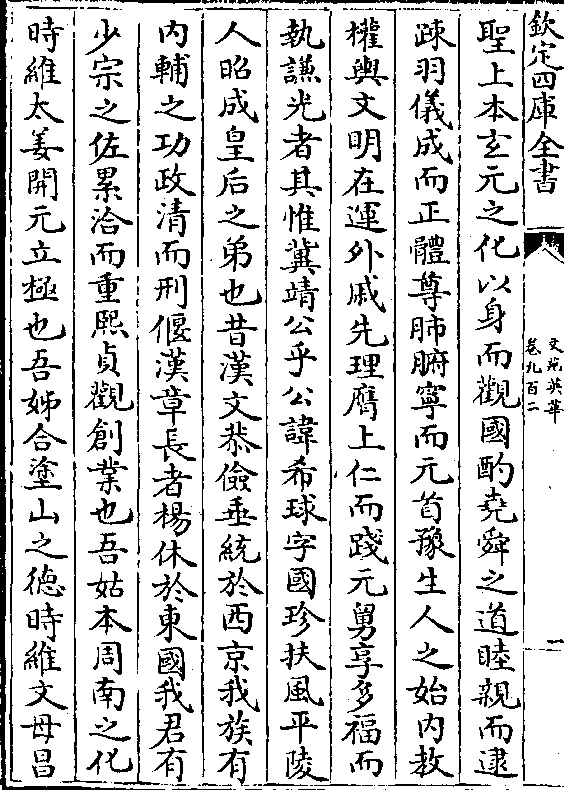 欽定四庫全書
文苑英華
卷九百二
一
聖上本玄元之化以身而觀國酌堯舜之道睦親而逮
疎羽儀成而正體尊肺腑寧而元首豫生人之始内教
權輿文明在運外戚先理膺上仁而踐元舅享多福而
執謙光者其惟冀靖公乎公諱希球字國珍扶風平陵
人昭成皇后之弟也昔漢文恭儉垂統於西京我族有
内輔之功政清而刑偃漢章長者楊休於東國我君有
少宗之佐累洽而重熙貞觀創業也吾姑本周南之化
時維太姜開元立極也吾姊合塗山之德時維文母昌